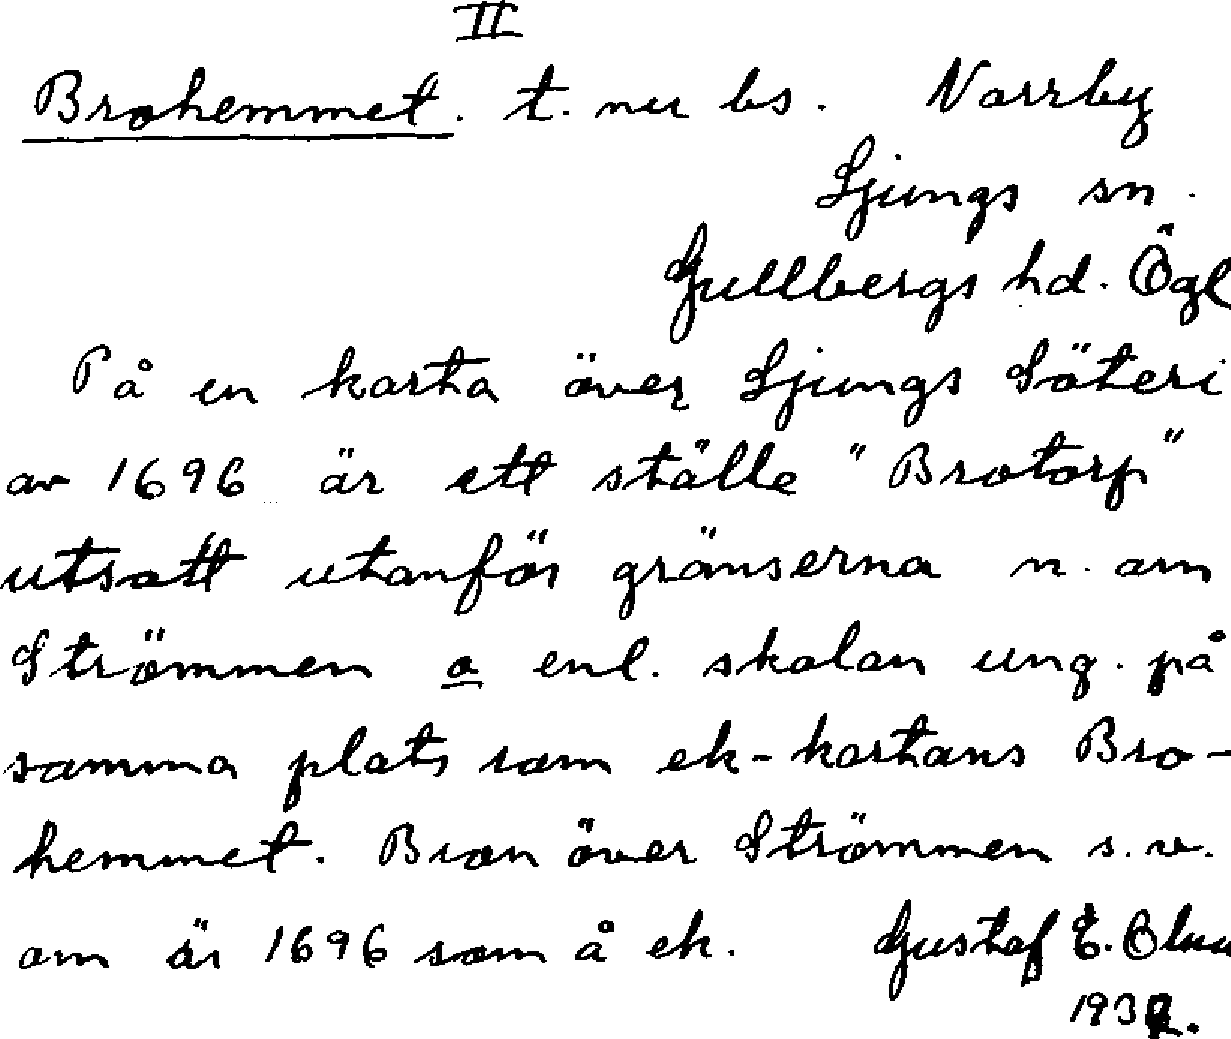 II
Brohemmet. t. nu bs. Norrby
Ljungs sn.
Gullbergs hd. Ögl
På en karta över Ljungs Säteri
av 1696 är ett ställe "Brotorp"
utsatt utanför gränserna n. om
Strömmen o enl. skalan ung. på
samma plats som ek-kartans Bro-
hemmet. Bron över Strömmen s.v.
om är 1696 som å ek. Gustaf E.
193